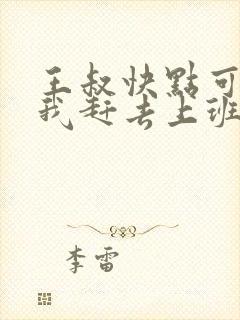 王叔快點可
我赶去上班
李雷